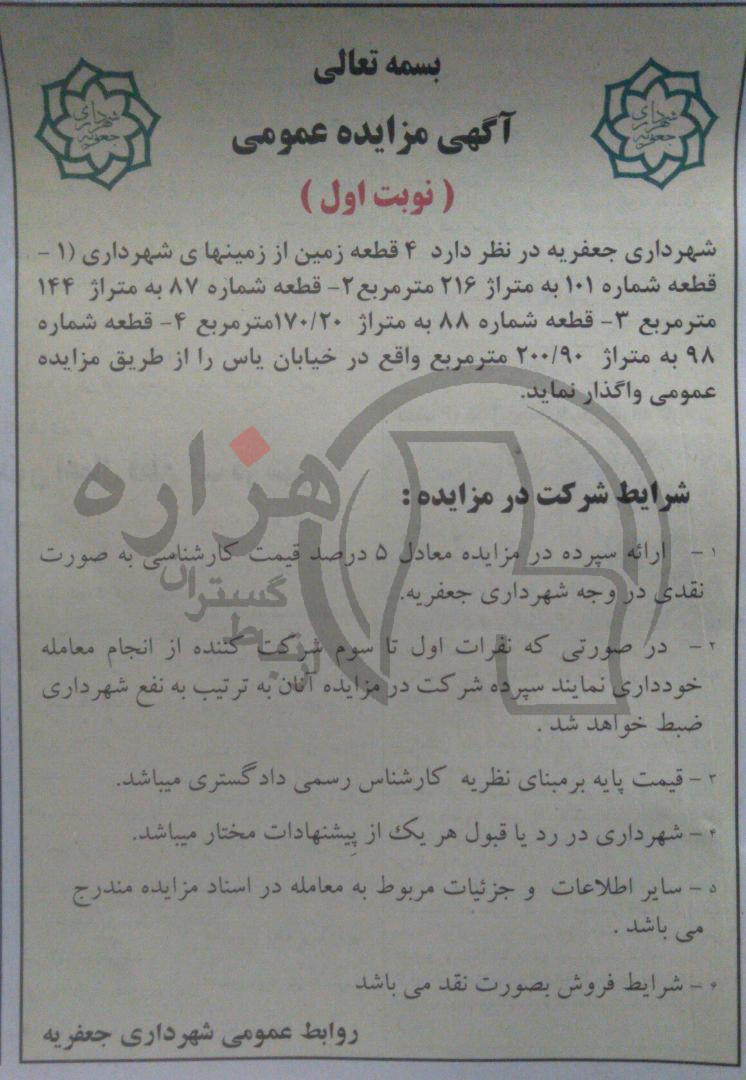 بسمه تعالی
آگهی مزایده عمومی
( نوبت اول )
شهرداری جعفریه
شهرداری جعفریه
شهرداری جعفریه در نظر دارد ۴ قطعه زمین از زمینها ی شهرداری (۱ -
قطعه شماره ۱۰۱ به متراژ ۲۱۶ مترمربع۲- قطعه شماره ۸۷ به متراژ ۱۴۴
مترمربع ۳- قطعه شماره ۸۸ به متراژ ۱۷۰/۲۰مترمربع ۴- قطعه شماره
۹۸ به متراژ ۲۰۰/۹۰ مترمربع واقع در خیابان یاس را از طریق مزایده
عمومی واگذار نماید.
شرایط شرکت در مزایده :
۱ - ارائه سپرده در مزایده معادل ۵ درصد قیمت کارشناسی به صورت
نقدی در وجه شهرداری جعفریه.
۲ - در صورتی که نفرات اول تا سوم شرکت کننده از انجام معامله
خودداری نمایند سپرده شرکت در مزایده آنان به ترتیب به نفع شهرداری
ضبط خواهد شد .
۳ - قیمت پایه برمبنای نظریه کارشناس رسمی دادگستری میباشد.
۴ - شهرداری در رد یا قبول هر یک از پیشنهادات مختار میباشد.
۵ - سایر اطلاعات و جزئیات مربوط به معامله در اسناد مزایده مندرج
می باشد .
۶ - شرایط فروش بصورت نقد می باشد
روابط عمومی شهرداری جعفریه
هزاره
گستران
ارتباط